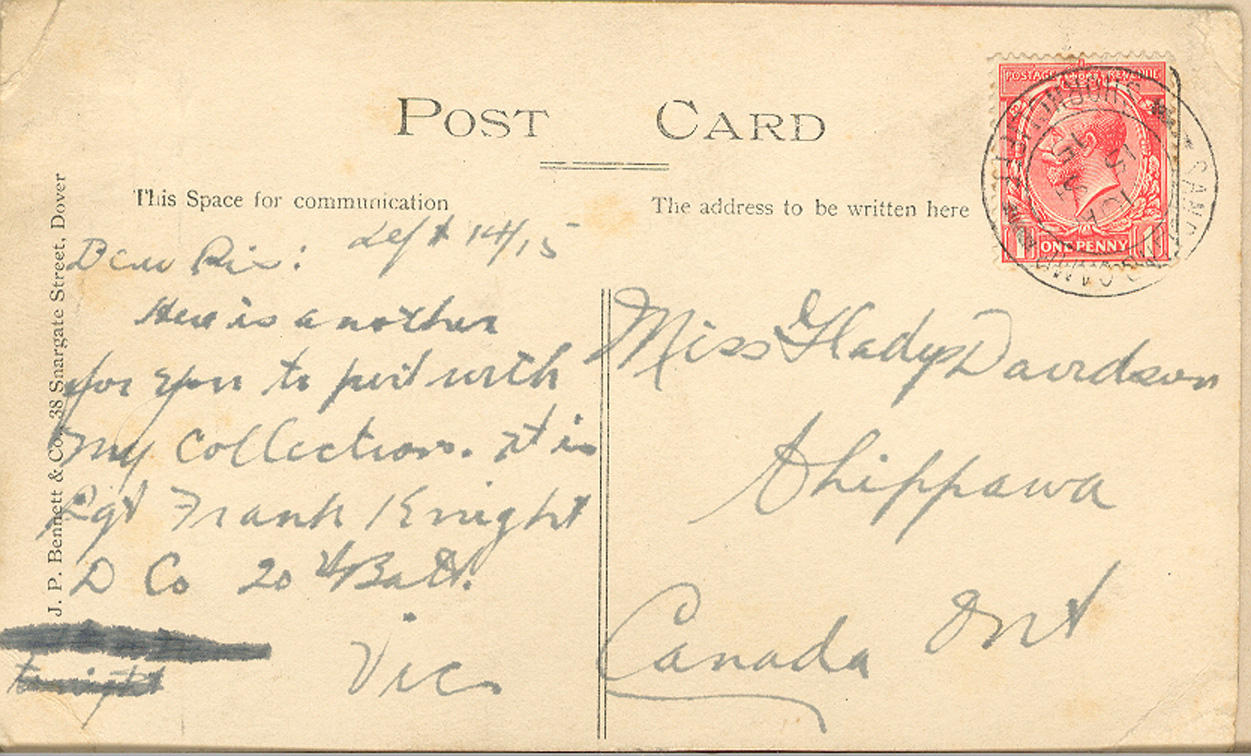 POST CARD
This Space for communication
The address to be written here
J. P. Bennett & Co., 38 Snargate Street, Dover
POSTAGE REVENUE
ONE PENNY
Sept 14/15
Dear Rix:
Here is another
for you to put with
my collection. It is
Sgt Frank Knight
D Co 20th Batt.
tonight
Vic
Miss Gladys Davidson
Chippawa
Canada Ont